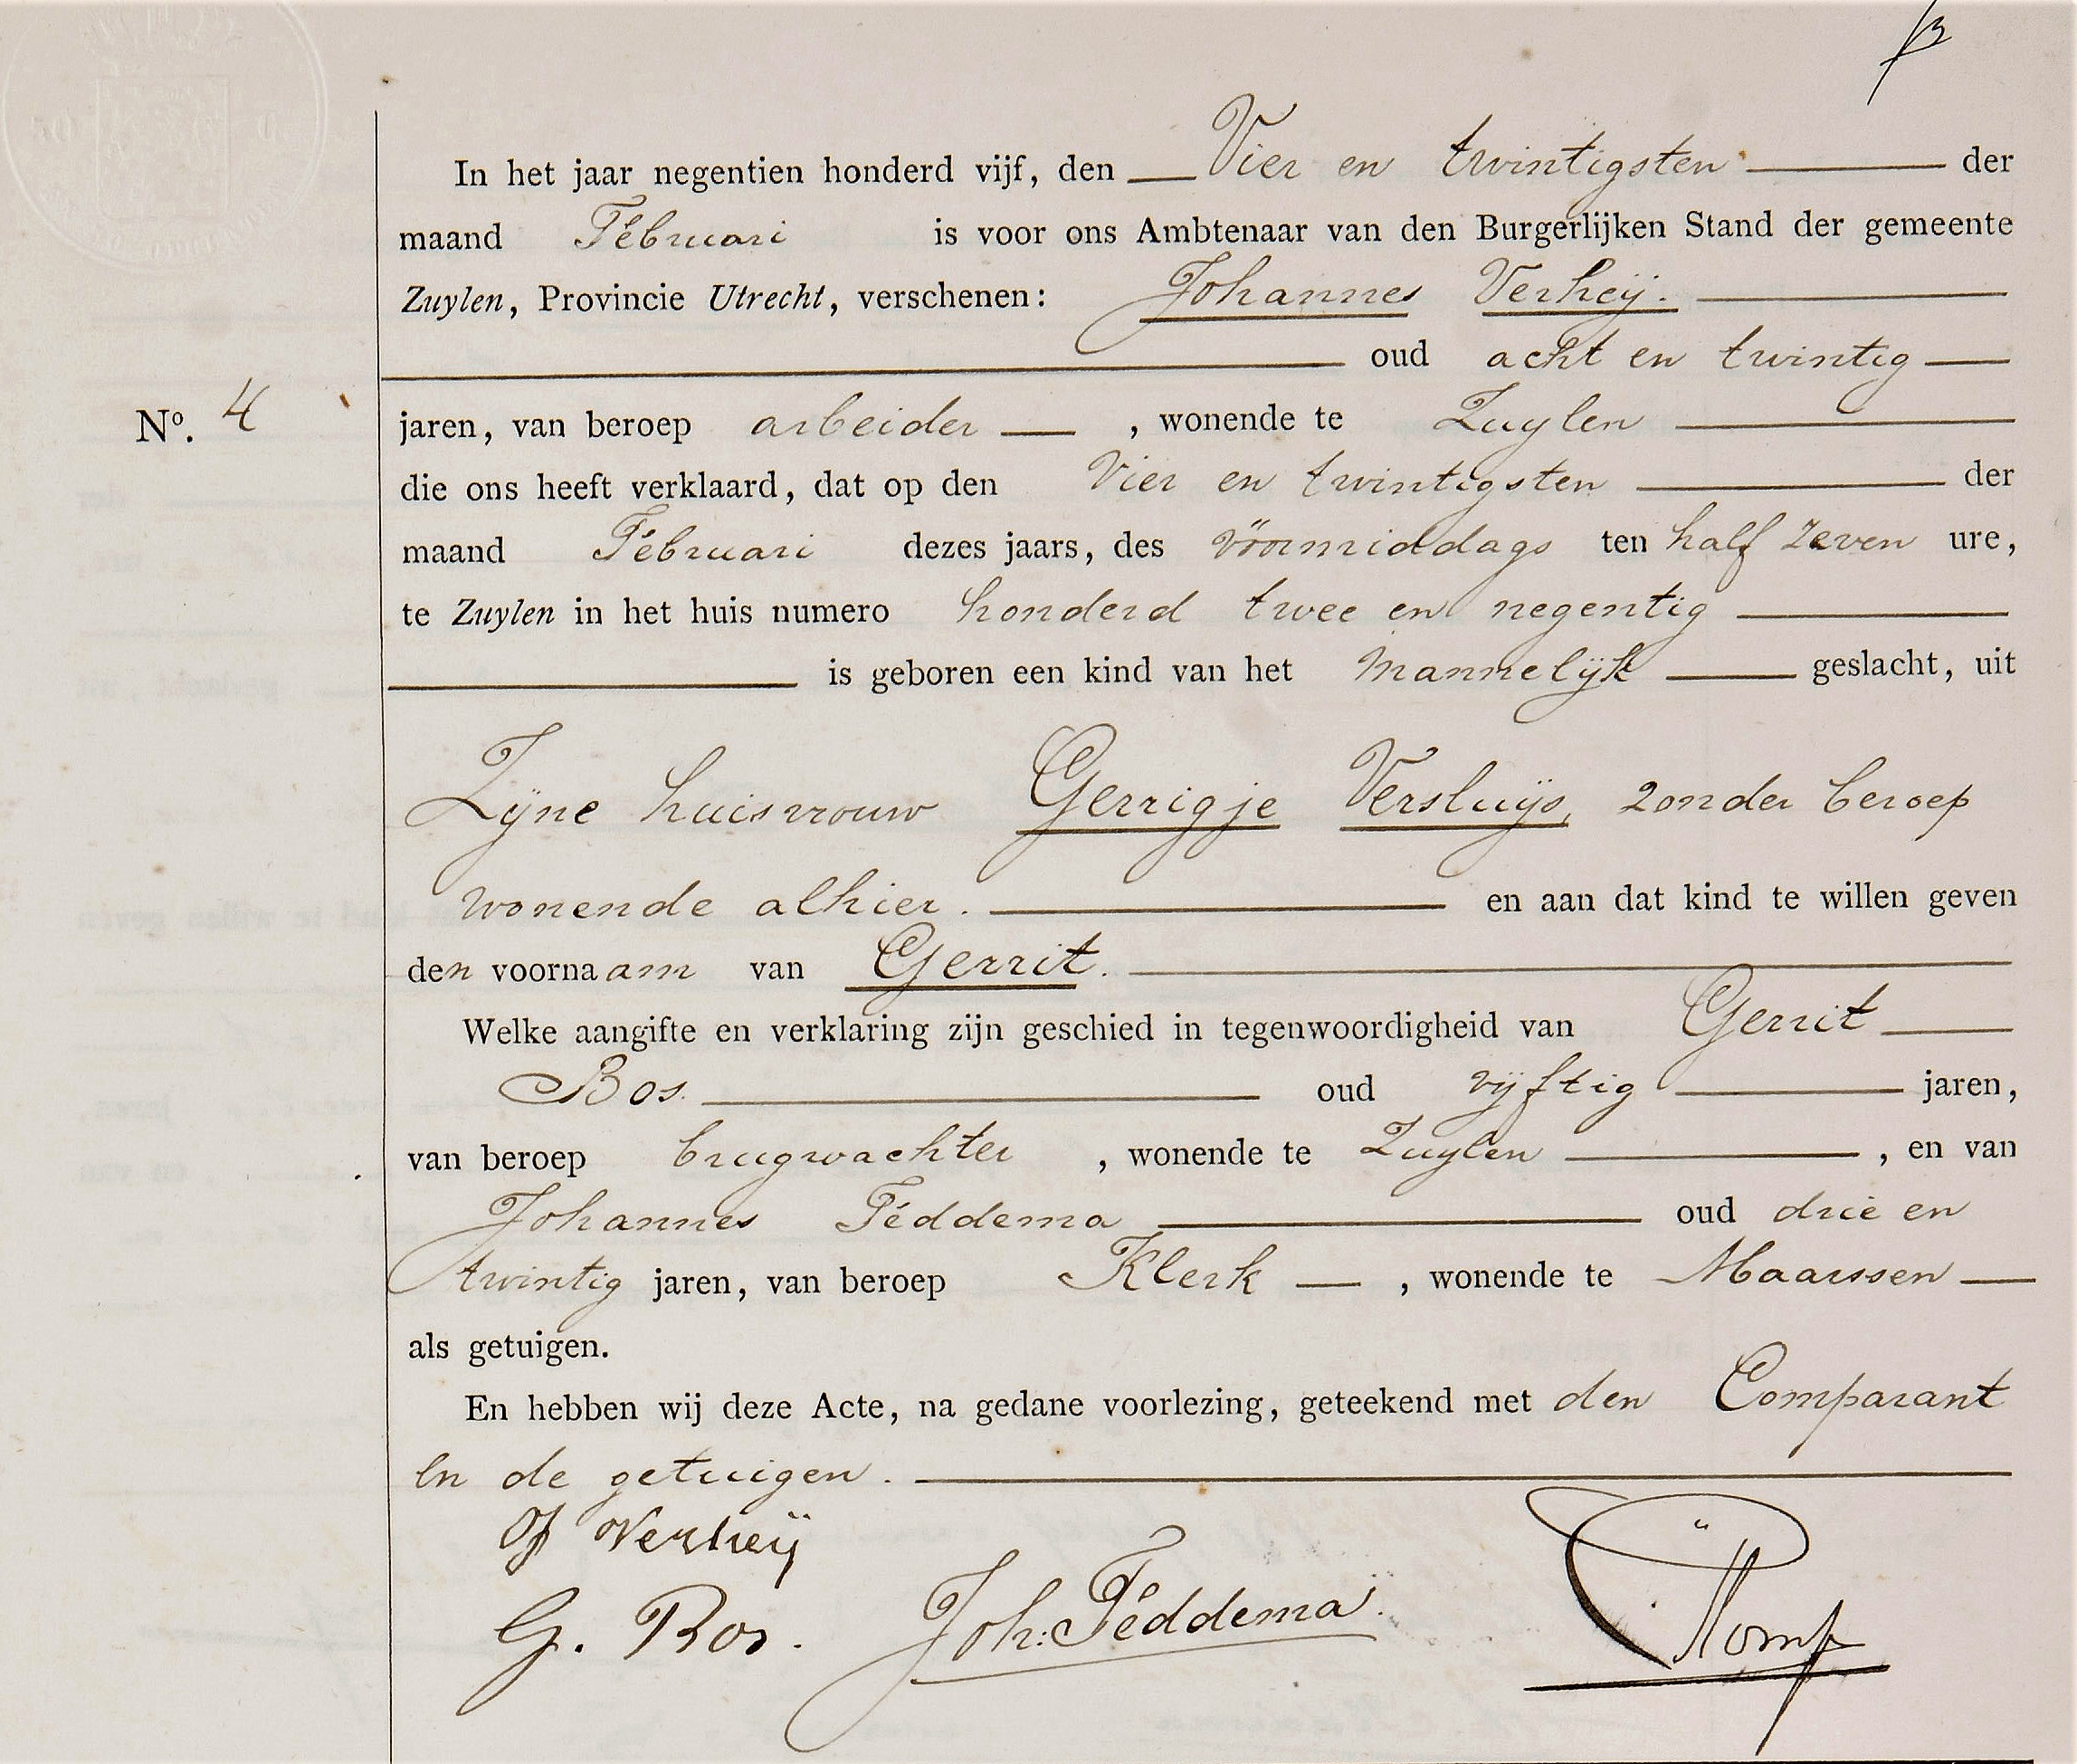 In het jaar negentien honderd vijf, den Vier en twintigsten der
maand Februari is voor ons Ambtenaar van den Burgerlijken Stand der gemeente
Zuylen, Provincie Utrecht, verschenen: Johannes Verheij.
oud acht en twintig
No. 4
jaren, van beroep arbeider, wonende te Zuylen
die ons heeft verklaard, dat op den Vier en twintigsten der
maand Februari dezes jaars, des voormiddags ten half zeven ure,
te Zuylen in het huis numero honderd twee en negentig
is geboren een kind van het mannelijk geslacht, uit
Zijne huisvrouw Gerrigje Versluijs, zonder beroep
wonende alhier. en aan dat kind te willen geven
den voornaam van Gerrit.
Welke aangifte en verklaring zijn geschied in tegenwoordigheid van Gerrit
Bos. oud vijftig jaren,
van beroep brugwachter, wonende te Zuylen, en van
Johannes Feddema oud drie en
twintig jaren, van beroep Klerk, wonende te Maarssen
als getuigen.
En hebben wij deze Acte, na gedane voorlezing, geteekend met den Comparant
en de getuigen.
Verheij
G. Bos. Joh: Feddema.